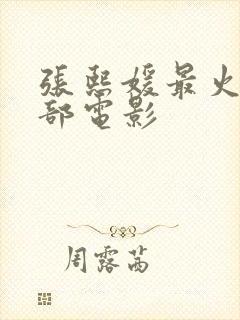 張熙媛最火
部電影
周露茜